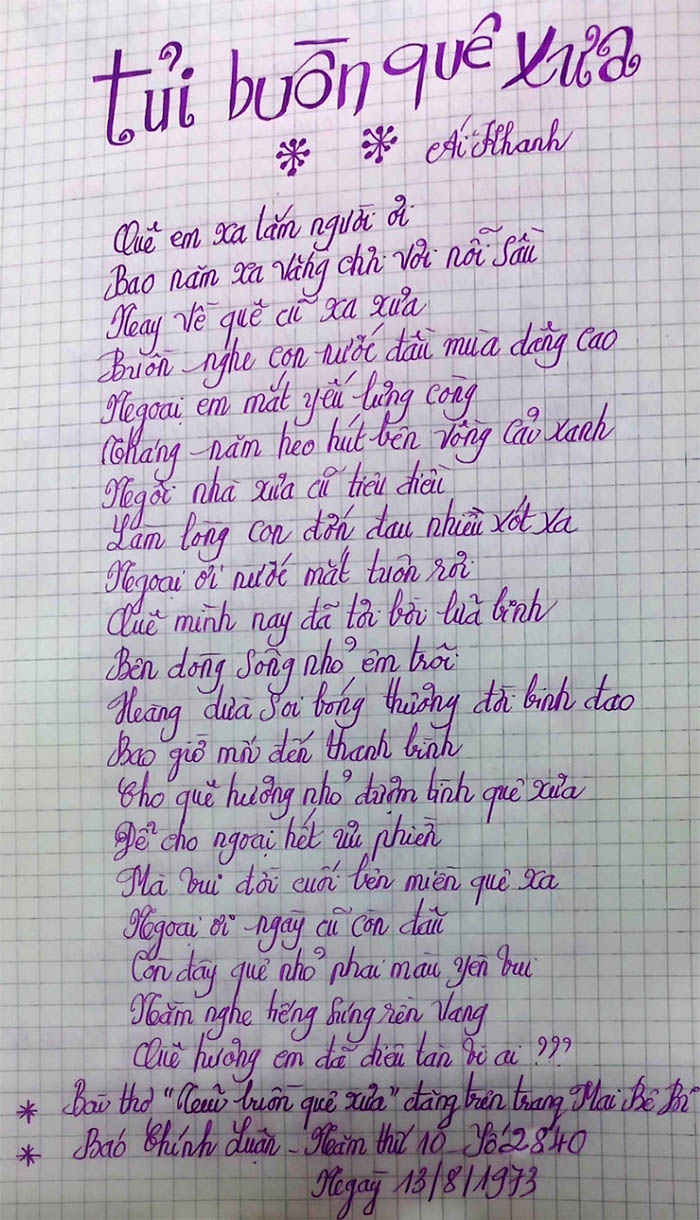 tủi buồn quê xưa
Ái Khanh
Quê em xa lắm người ơi
Bao năm xa vắng chơi vơi nỗi sầu
Nay về quê cũ xa xưa
Buồn nghe con nước đầu mùa dâng cao
Ngoại em mắt yếu lưng còng
Tháng năm heo hút bên vồng cải xanh
Ngôi nhà xưa cũ tiêu điều
Làm lòng con đớn đau nhiều xót xa
Ngoại ơi nước mắt tuôn rơi
Quê mình nay đã tơi bời lửa binh
Bên dòng sông nhỏ êm trôi
Hàng dừa soi bóng thương đời binh đao
Bao giờ mới đến thanh bình
Cho quê hương nhỏ đượm tình quê xưa
Để cho ngoại hết ưu phiền
Mà vui đời cuối bên miền quê xa
Ngoại ơi ngày cũ còn đâu
Còn đây quê nhỏ phai màu yên vui
Nằm nghe tiếng súng rền vang
Quê hương em đã điêu tàn vì ai ???
* Bài thơ "Tủi buồn quê xưa" đăng trên trang Mai Bê Bi
* Báo Chính Luận - Năm thứ 10 - Số 2840
Ngày 13/8/1973